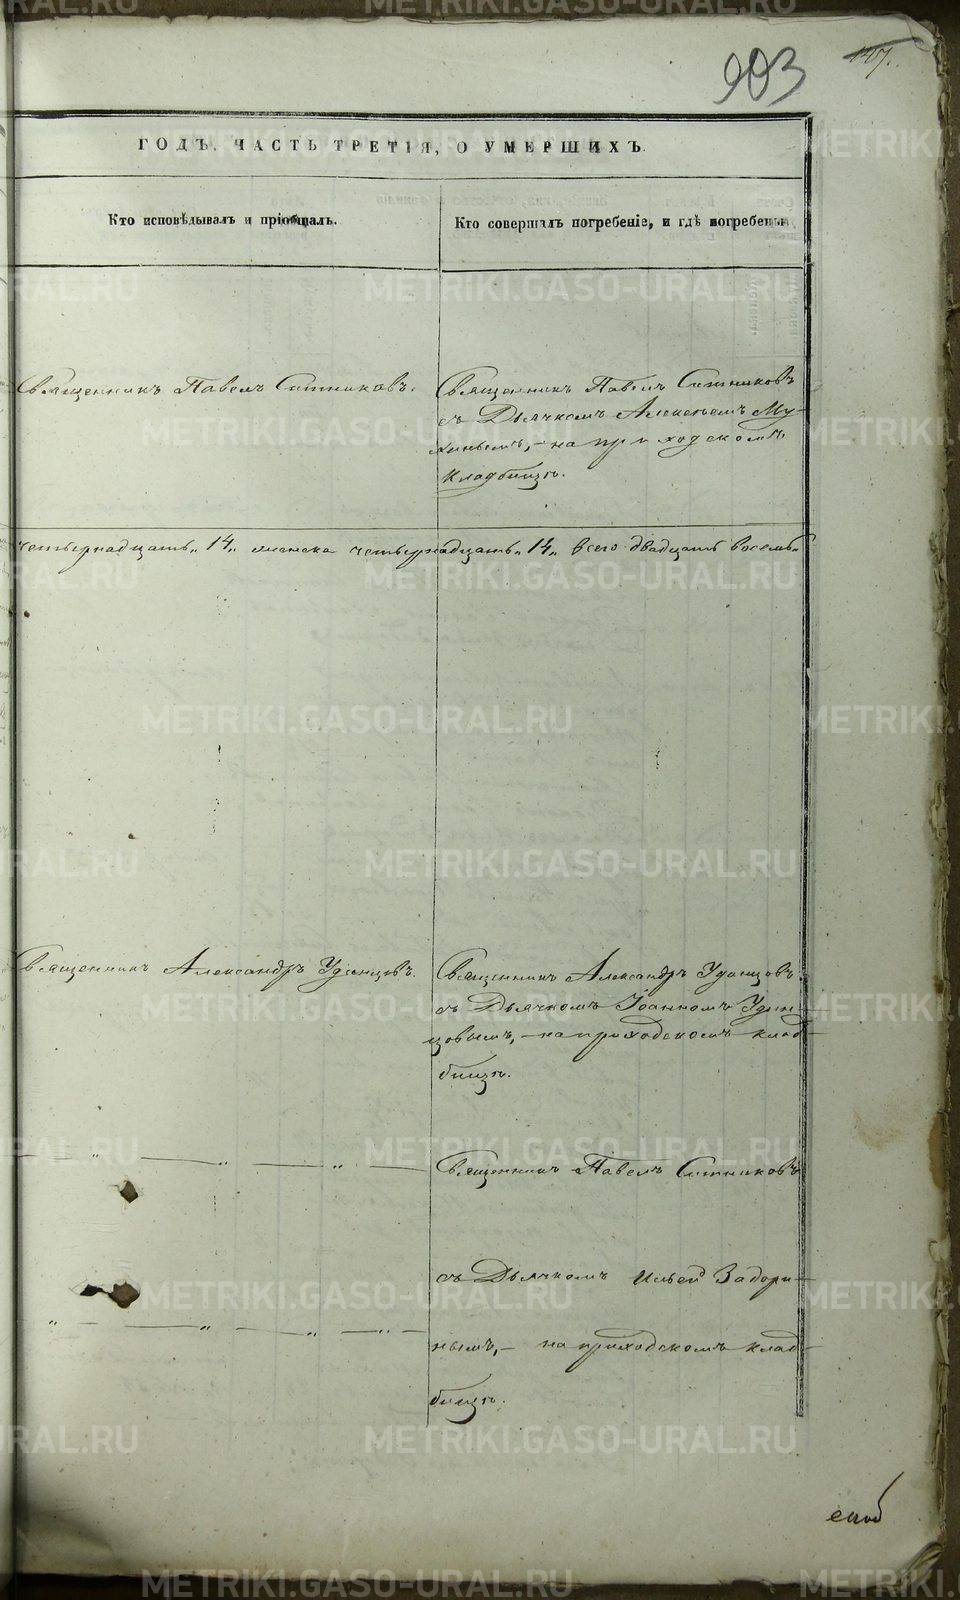 903
107.
ГОДЪ. ЧАСТЬ ТРЕТІЯ, О УМЕРШИХЪ.
Кто исповѣдывалъ и пріобщалъ.
Кто совершалъ погребеніе, и гдѣ погребены.
Священникъ Павелъ Ситниковъ.
Священникъ Павелъ Ситниковъ
съ Дьячкомъ Алексѣемъ Му-
хинымъ, - на приходскомъ
кладбищѣ.
четырнадцать „14„ женска четырнадцать „14„ всего двадцать восемь
Священникъ Александръ Удинцовъ.
Священникъ Александръ Удинцовъ
съ Дьячкомъ Іоанномъ Удин-
цовымъ, - на приходскомъ клад-
бищѣ.
Священникъ Павелъ Ситниковъ
съ Дьячкомъ Ильей Задори-
нымъ, - на приходскомъ клад-
бищѣ.
METRIKI.GASO-URAL.RU